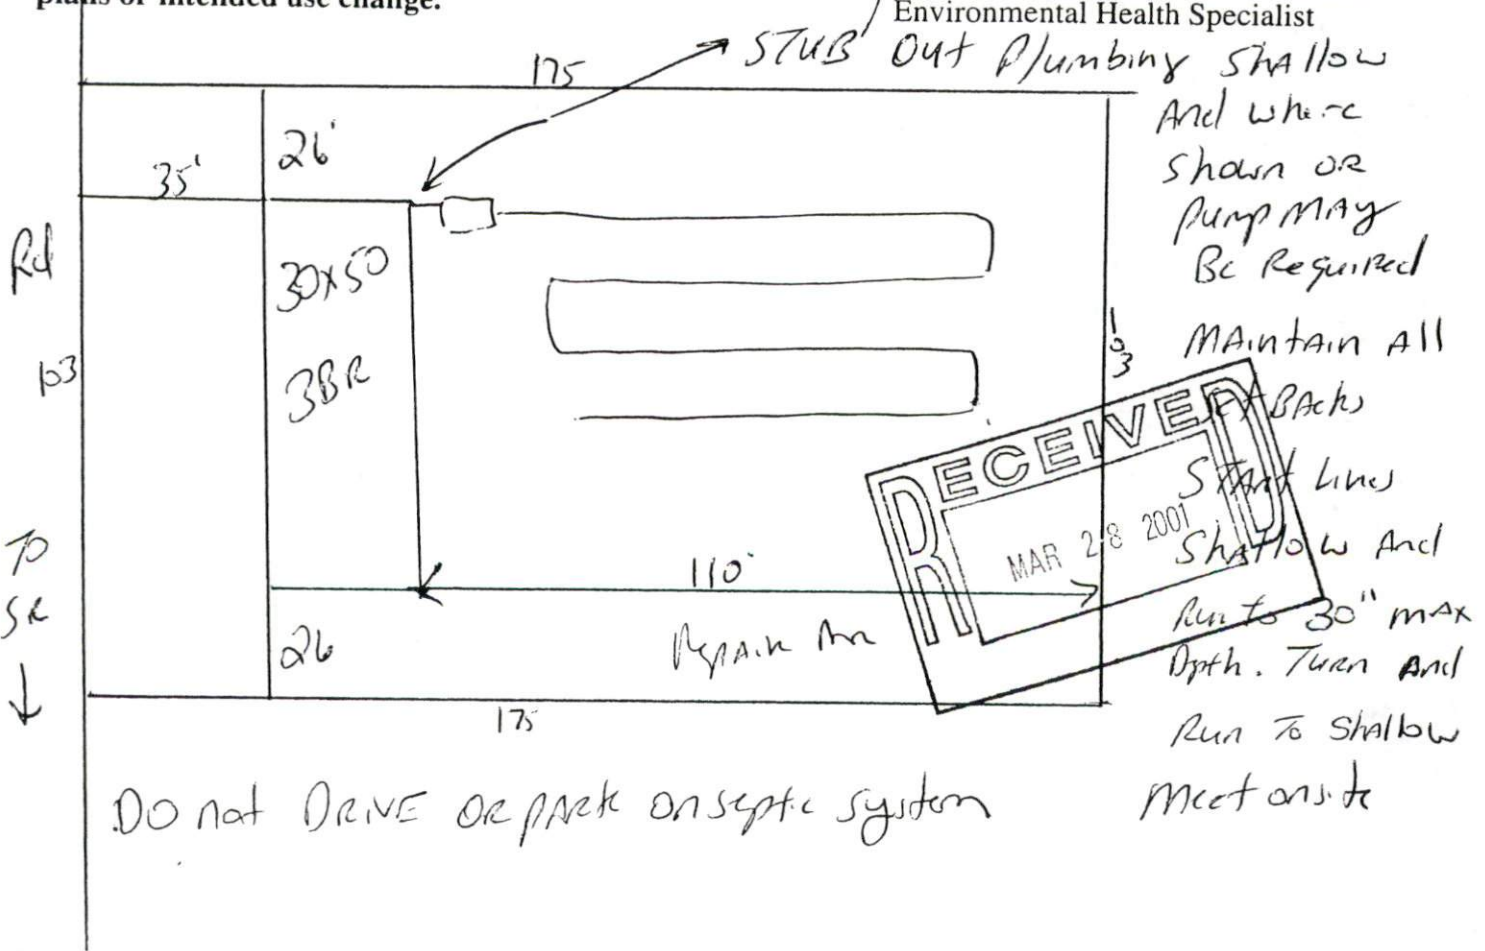 plans or intended use change.
Environmental Health Specialist
STUB Out Plumbing Shallow
And where
Shown OR
Pump MAy
Be Required
MAintain All
SetBAcks
STArt Lines
Shallow And
Run to 30" mAx
Dpth. Turn And
Run To Shallow
Meet onsite
175
35'
26'
30x50
3BR
Rd
103
To
SR
103
RECEIVED
MAR 28 2001
110'
26
Repair
175
DO not DRIVE OR pARk on septic system